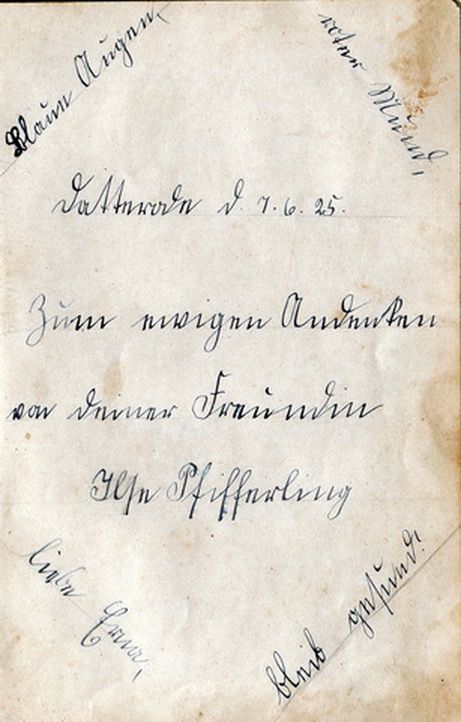 Blaue Augen,
roter Mund,
Datterode d. 7. 6. 25.
Zum ewigen Andenken
von deiner Freundin
Ilse Pfifferling
liebe Erna,
bleib gesund!